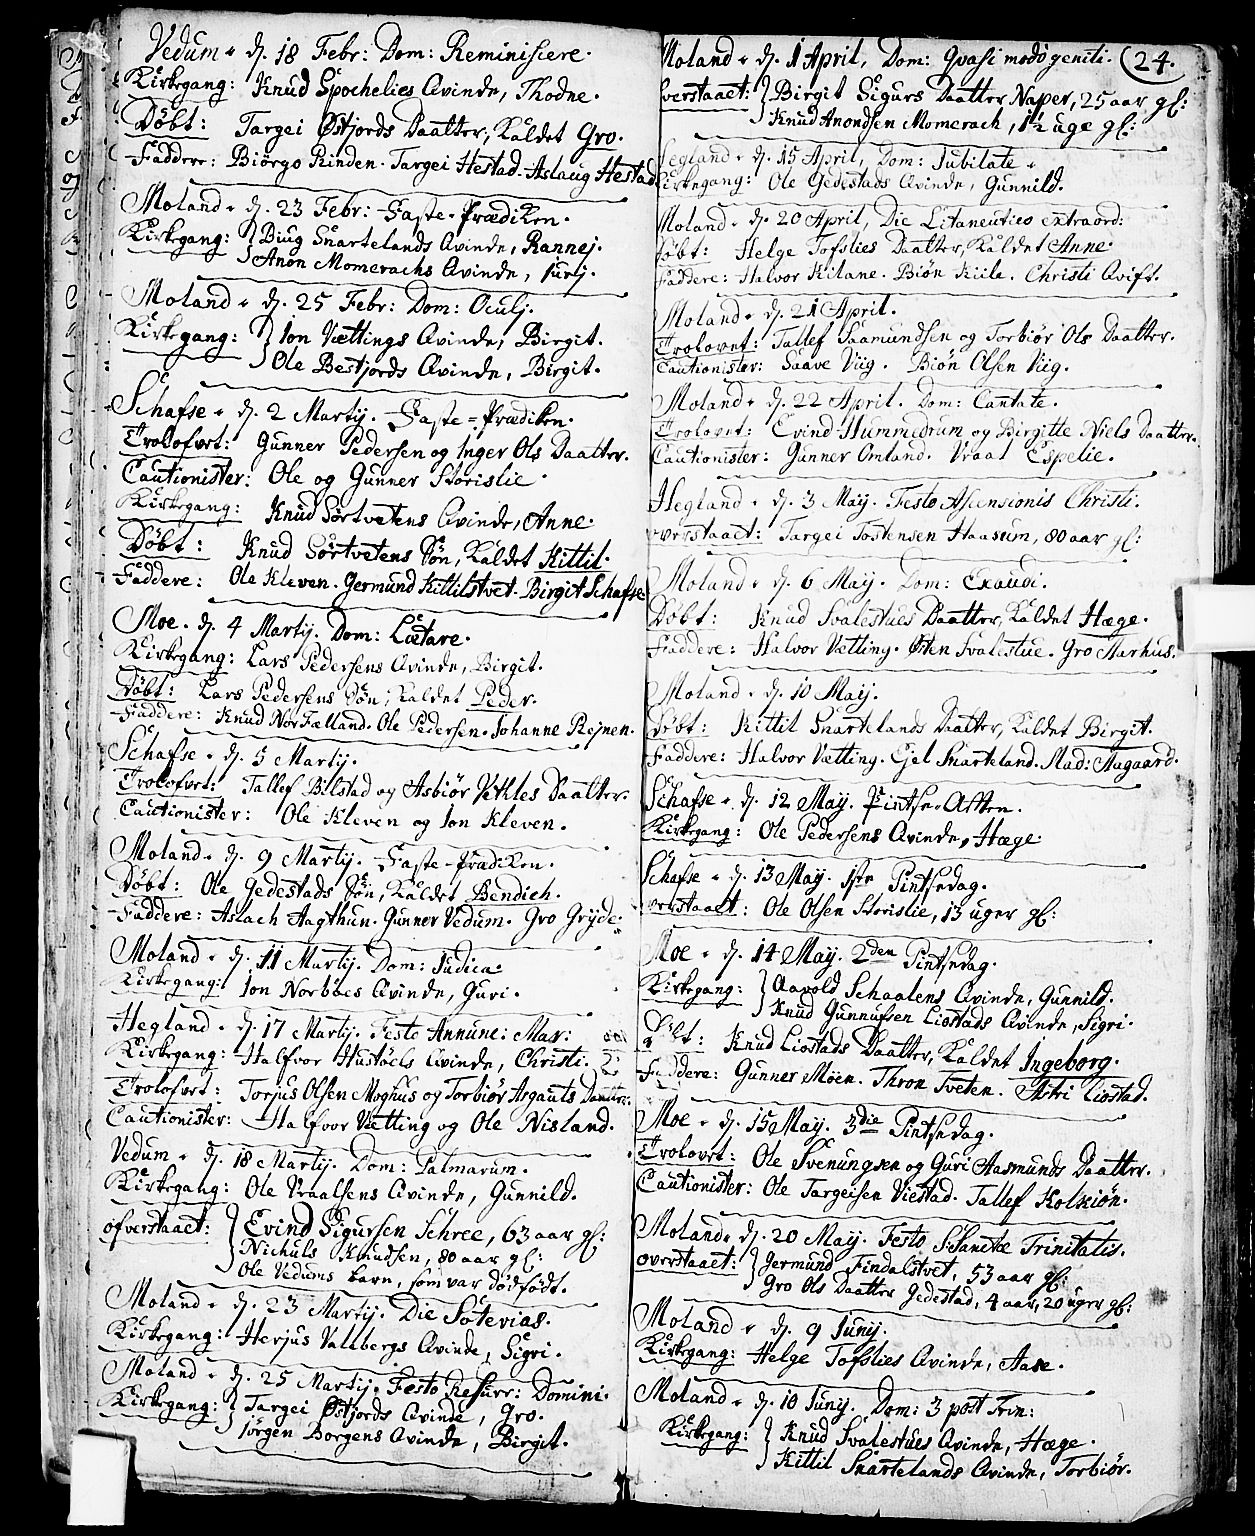 Vedum. d. 18 Febr: Dom: Reminiscere.
Kirkegang: Knud Spochelies Qvinde, Thodne.
Døbt: Targei Østjords Daatter, kaldet Gro.
Faddere: Biørgo Rinden. Targei Hestad. Aslaug Hestad
Moland. d. 23 Febr: Faste-Prædiken.
Kirkegang: Biug Snartelands Qvinde, Rannej.
Anon Momerachs Qvinde, Jurij.
Moland. d. 25 Febr: Dom: Oculj.
Kirkegang: Jon Vettings Qvinde, Birgit.
Ole Bestjords Qvinde, Birgit.
Schafse. d. 2 Martij. Faste=Prædiken.
Trolofvet: Gunner Pedersen og Inger Ols Daatter.
Cautionister: Ole og Gunner Storislie.
Kirkegang: Knud Sørtvetens Qvinde, Anne.
Døbt: Knud Sørtvetens Søn, kaldet Kittil.
Faddere: Ole Kleven. Germund Kittilstvet. Birgit Schafse
Moe. d. 4 Martij. Dom: Lætare.
Kirkegang: Lars Pedersens Qvinde, Birgit.
Døbt: Lars Pedersens Søn, kaldet Peder.
Faddere: Knud NorFælland. Ole Pedersen. Johanne Rejnen.
Schafse d. 5 Martij.
Trolofvet: Tallef Bilstad og Asbiør Vetkles Daatter.
Cautionister: Ole Kleven og Jon Kleven.
Moland. d. 9 Martij. Faste-Prædiken.
Døbt: Ole Gedestads Søn, kaldet Bendich.
Faddere: Aslach Aagthun. Gunner Vedum. Gro Gryde.
Moland. d. 11 Martij. Dom: Judica.
Kirkegang: Jon Norbøes Qvinde, Guri.
Hegland. d. 17 Martij. Festo Annunc: Mar:
Kirkegang: Halfvor Hustøels Qvinde, Christi.
Trolofvet: Torjus Olsen Moghus og Torbiør Asgauts Daatter.
Cautionister: Halfvor Vetting og Ole Nisland.
Vedum. d. 18 Martij. Dom: Palmarum.
Kirkegang: Ole Vraalsens Qvinde, Gunnild.
ofverstaaet: Evind Sigursen Schree, 63 aar gl:
Nichuls Knudsen, 80 aar gl:
Ole Vedums barn, som var Dødfødt.
Moland. d. 23 Martij. Die Soterias.
Kirkegang: Herjus Valbergs Qvinde, Sigri.
Moland. d. 25 Martij. Festo Resurr: Domini.
Kirkegang: Targei Østjords Qvinde, Gro.
Jørgen Borgens Qvinde, Birgit.
24.
Moland. d. 1 April, Dom: Qvasi modo geniti.
overstaaet: Birgit Sigurs Daatter Naper, 25 aar gl:
Knud Anondsen Momerach, 1½ uge gl:
Hegland. d. 15 April, Dom: Jubilate.
Kirkegang: Ole Gedestads Qvinde, Gunnild.
Moland. d. 20 April, Die Litaneutico extraord:
Døbt: Helge Tofslies Daatter, kaldet Anne.
Faddere: Halvor Kilane. Biøn Kiile. Christi Qvift.
Moland. d. 21 April.
Trolovet: Tallef Saamundsen og Torbiør Ols Daatter.
Cautionister: Saave Viig. Biøn Olsen Viig.
Moland. d. 22 April. Dom: Cantate.
Trolovet: Evind Hummedrum og Birgitte Niels Daatter.
Cautionister: Gunner Omland. Vraal Espelie.
Hegland. d. 3 Maij. Festo Ascensionis Christi.
overstaaet: Targei Tostensen Haasum, 80 aar gl:
Moland. d. 6 Maij. Dom: Exaudi.
Døbt: Knud Svalestues Daatter, kaldet Hæge.
Faddere: Halvor Vetting. Østen Svalestue. Gro Aarhus.
Moland. d. 10 Maij.
Døbt: Kittil Snartelands Daatter, kaldet Birgit.
Faddere: Halvor Vetting. Gjel Snarteland. Mad: Aagaard.
Schafse. d. 12 Maij. Pintse-Aften.
Kirkegang: Ole Pedersens Qvinde, Hæge.
Schafse. d. 13 Maij. 1ste Pintsedag.
overstaaet: Ole Olsen Storislie, 13 uger gl:
Moe. d. 14 Maij. 2den Pintsedag.
Kirkegang: Aavold Schaalens Qvinde, Gunnild.
Knud Gunnufsen Liostads Qvinde, Sigri.
Døbt: Knud Liostads Daatter, kaldet Ingeborg.
Faddere: Gunner Moen. Thron Tveten. Astri Liostad.
Moe. d. 15 Maij. 3die Pintsedag.
Trolovet: Ole Svenungsen og Guri Aasmunds Daatter.
Cautionister: Ole Targeisen Viestad. Tallef Kolkiøn.
Moland. d. 20 Maij. Festo SSanctæ Trinitatis.
overstaaet: Germund Findalstvet, 53 aar gl:
Gro Ols Daatter Gedestad, 4 aar, 20 uger gl:
Moland. d. 9 Junij.
Kirkegang: Helge Tofslies Qvinde, Aase.
Moland. d. 10 Junij. Dom: 3 post Trin:
Kirkegang: Knud Svalestues Qvinde, Hæge.
Kittil Snartelands Qvinde, Torbiør.